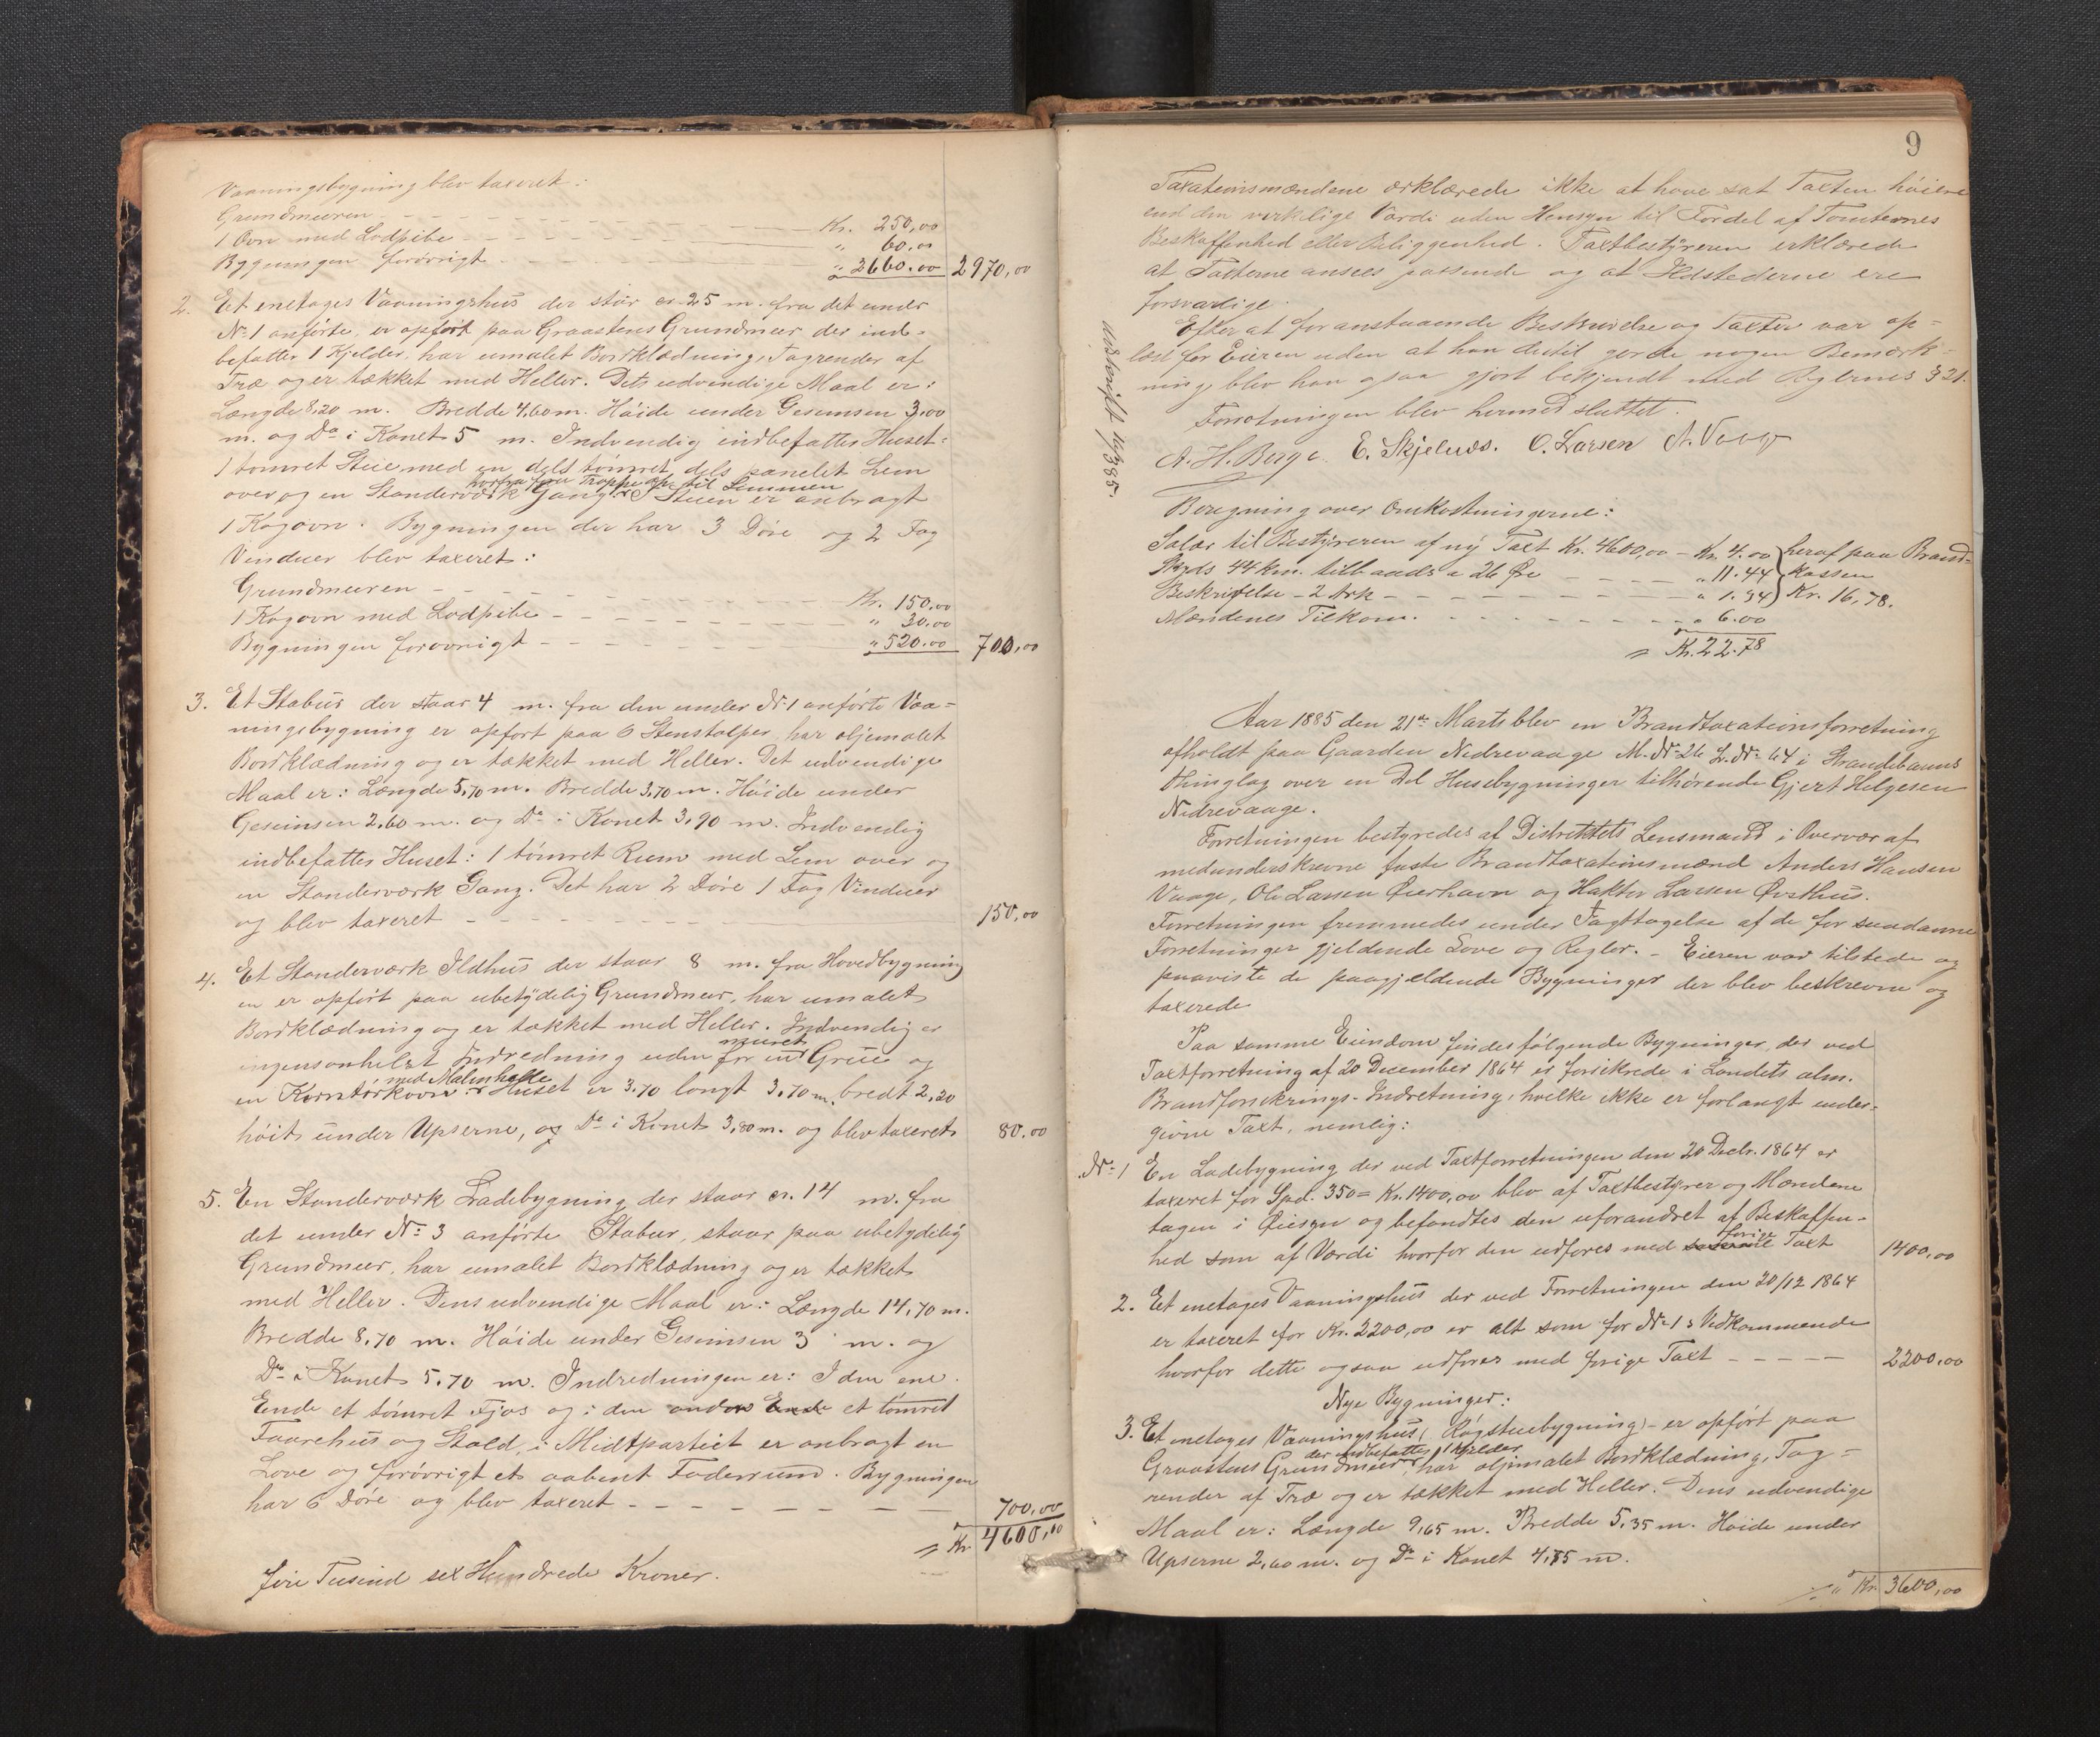 Vaaningsbygning blev taxeret:
Grundmuren - - - - - - - Kr. 250,00
1 Ovn med Lodpibe - - - - - - - " 60.00
Bygningen forøvrigt - - - - - - " 2660.00 2970,00
2. Et enetages Vaaningshus der står cr. 25 m. fra det under
No 1 anførte, er opført paa Graastens Grundmur der ind-
befatter 1 Kjelder, har umalet Bordklædning, Tagrender af
Træ og er tækket med Heller. Dets udvendige Maal er:
Længde 8,20 m. Bredde 4,60 m. Høide under Gesimsen 3,00
m. og Do i Konet 5 m. Indvendig indbefatter Huset:
1 tømret Stue med en dels tømret dels panelet Lem
over og en Standerværk Gang hvorfra fører Trappe op til Lemmen. I Stuen er anbragt
1 Kogovn. Bygningen der har 3 Døre og 2 Fag
Vinduer blev taxeret:
Grundmuren - - - - - - - Kr. 150,00
1 Kogovn med Lodpibe - - - - - - " 30.00
Bygningen forøvrigt - - - - - - " 520.00 700,00
3. Et Stabur der staar 4 m. fra den under No 1 anførte Vaa-
ningsbygning er opført paa 6 Stenstolper, har oljemalet
Bordklædning og er tækket med Heller. Det udvendige
Maal er: Længde 5,70 m. Bredde 3,70 m. Høide under
Gesimsen 2,60 m. og Do i Konet 3,90 m. Indvendig
indbefatter Huset: 1 tømret Rum med Lem over og
en Standerværk Gang. Det har 2 Døre 1 Fag Vinduer
og blev taxeret - - - - - - - 150,00
4. Et Standerværk Ildhus der staar 8 m. fra Hovedbygning
en er opført paa ubetydelig Grundmur, har umalet
Bordklædning og er tækket med Heller. Indvendig er
ingensomhelst Indredning uden for en muret Grue og
en Korntørkovn med Malmhelle. Huset er 3.70 langt 3,70 m. bredt 2,20
høit under Upserne, og Do i Konet 3,80 m. og blev taxeret 80.00
5. En Standerværk Ladebygning der staar cr. 14 m. fra
det under No 3 anførte Stabur, staar paa ubetydelig
Grundmur, har umalet Bordklædning og er tækket
med Heller. Dens udvendige Maal er: Længde 14,70 m.
Bredde 8,70 m. Høide under Gesimsen 3 m. og
Do i Konet 5.70 m. Indredningen er: I den ene
Ende et tømret Fjøs og i den anden Ende et tømret
Faarehus og Stald, i Midtpartiet er anbragt en
Love og forøvrigt et aabent Foderrum. Bygningen
har 6 Døre og blev taxeret - - - - - - - 700,00
Kr. 4600,00
fire Tusind sex Hundrede Kroner.
9
Taxationsmændene erklærede ikke at have sat Taxten høiere
end den virkelige Værdi uden Hensyn til Fordel af Tomternes
Beskaffenhed eller Beliggenhed. Taxtbestyreren erklærede
at Taxterne ansees passende og at Ildstederne ere
forsvarlige.
Efter at foranstaaende Beskrivelse og Taxter var op-
læst for Eieren uden at han dertil gjorde nogen Bemærk-
ning, blev han ogsaa gjort bekjendt med Reglernes § 21.
Forretningen blev hermed sluttet.
A. H. Berge. E. Skjelnes. O. Larsen A. Vaage
Udskrift 14/3 85.
Beregning over Omkostningerne:
Salær til Bestyreren af ny Taxt Kr. 4600,00 - Kr. 4.00 heraf paa Brand-
Skyds 44 km. tillands a 26 Øre - - - - " 11.44 kassen
Beskrivelse - 2 Ark - - - - - - - " 1.34 Kr. 16,78.
Mændenes Tilkom. - - - - - - - " 6.00
Kr. 22.78
Aar 1885 den 21de Marts blev en Brandtaxationsforretning
afholdt paa Gaarden Nedrevaage M. No 26 L. No 64 i Strandebarms
Thinglag over en Del Husebygninger tilhørende Gjert Helgesen
Nedrevaage.
Forretningen bestyredes af Distriktets Lensmand i Overvær af
medunderskrevne faste Brandtaxationsmænd Anders Hansen
Vaage, Ole Larsen Øierhavn og Haktor Larsen Øvsthus.
Forretningen fremmedes under Iagttagelse af de for saadanne
Forretninger gjeldende Love og Regler. - Eieren var tilstede og
paaviste de paagjeldende Bygninger der blev beskrevne og
taxerede
Paa samme Eiendom findes følgende Bygninger, der ved
Taxtforretning af 20 December 1864 er forsikrede i Landets alm.
Brandforsikrings-Indretning, hvilke ikke er forlangt under-
givne Taxt, nemlig:
No 1 En Ladebygning der ved Taxtforretningen den 20 Decbr. 1864 er
taxeret for Spd. 350 = Kr. 1400,00 blev af Taxtbestyrer og Mændene
tagen i Øiesyn og befandtes den uforandret af Beskaffen-
hed som af Værdi hvorfor den udføres med forige Taxt 1400,00
2. Et enetages Vaaningshus der ved Forretningen den 20/12 1864
er taxeret for Kr. 2200,00 er alt som for No 1's Vedkommende
hvorfor dette ogsaa udføres med forige Taxt - - - - 2200,00
Nye Bygninger:
3. Et enetages Vaaningshus (Røgstuebygning) - er opført paa
Graastens Grundmur der indbefatter 1 Kjelder, har oljemalet Bordklædning, Tag-
render af Træ og er tækket med Heller. Dens udvendige
Maal er: Længde 9,65 m. Bredde 5,35 m. Høide under
Upserne 2,60 m. og Do i Konet 4,85 m.
Kr. 3600,00